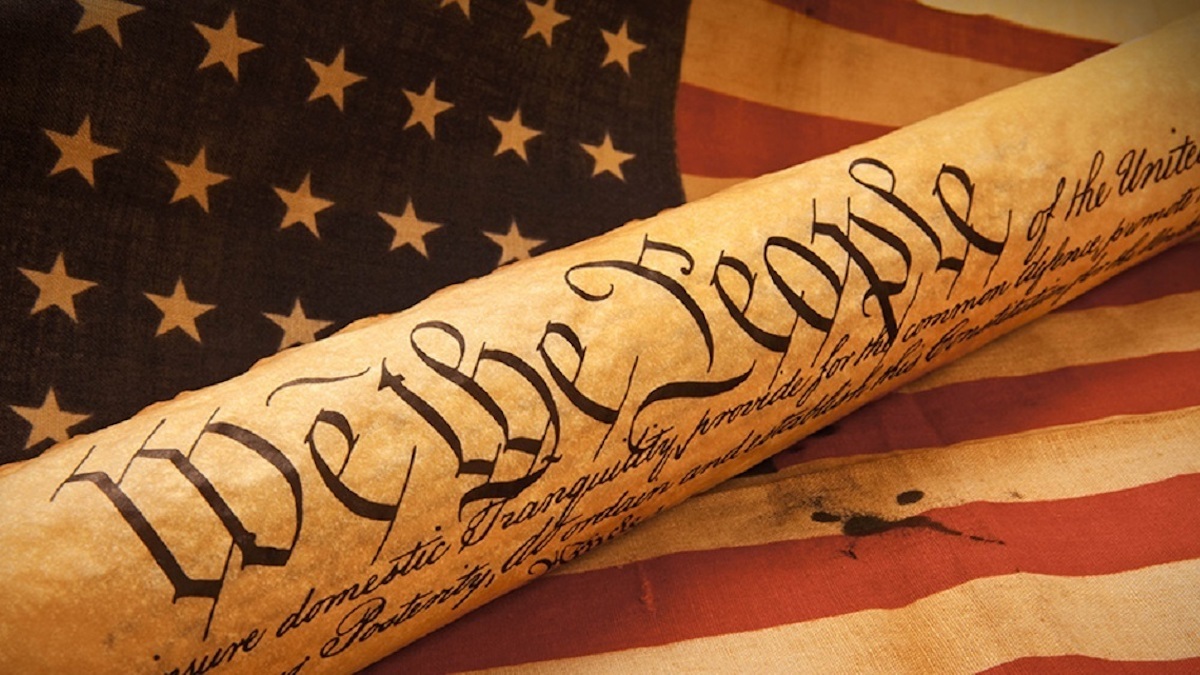 We the People of the Unite
nsure domestic Tranquility, provide for the common defence, promote
Posterity, do ordain and establish this Constitution for the